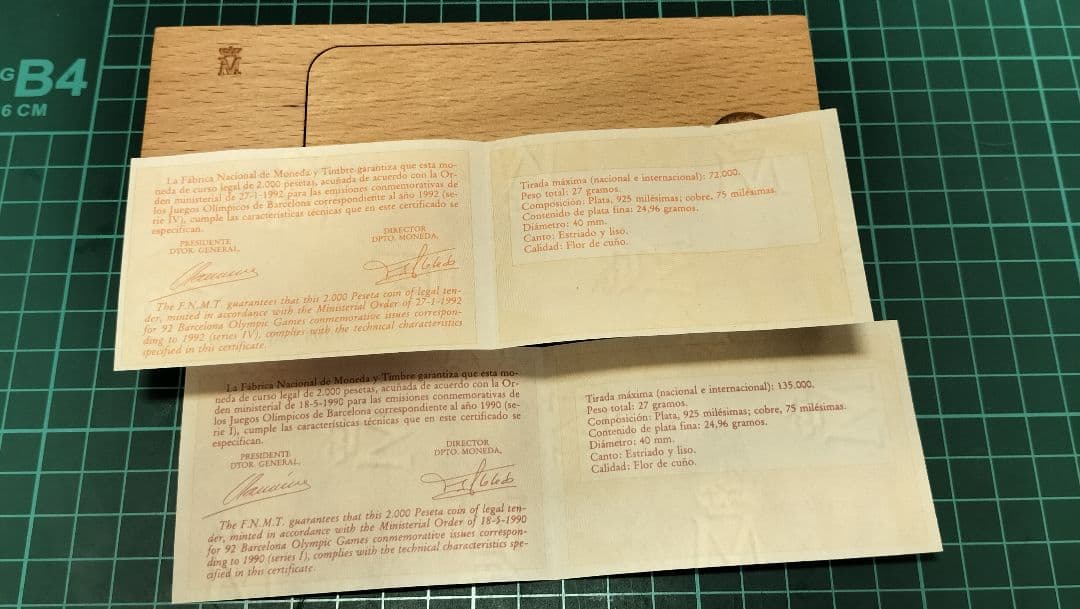 G B4
6 CM
La Fábrica Nacional de Moneda y Timbre garantiza que esta mo-
neda de curso legal de 2.000 pesetas, acuñada de acuerdo con la Or-
den ministerial de 27-1-1992 para las emisiones conmemorativas de
los Juegos Olímpicos de Barcelona correspondiente al año 1992 (se-
rie IV), cumple las características técnicas que en este certificado se
especifican.
PRESIDENTE
DTOR. GENERAL,
DIRECTOR
DPTO. MONEDA,
The F.N.M.T. guarantees that this 2.000 Peseta coin of legal ten-
der, minted in accordance with the Ministerial Order of 27-1-1992
for 92 Barcelona Olympic Games commemorative issues correspon-
ding to 1992 (series IV), complies with the technical characteristics
specified in this certificate.
Tirada máxima (nacional e internacional): 72.000.
Peso total: 27 gramos.
Composición: Plata, 925 milésimas; cobre, 75 milésimas.
Contenido de plata fina: 24,96 gramos.
Diámetro: 40 mm.
Canto: Estriado y liso.
Calidad: Flor de cuño.
La Fábrica Nacional de Moneda y Timbre garantiza que esta mo-
neda de curso legal de 2.000 pesetas, acuñada de acuerdo con la Or-
den ministerial de 18-5-1990 para las emisiones conmemorativas de
los Juegos Olímpicos de Barcelona correspondiente al año 1990 (se-
rie I), cumple las características técnicas que en este certificado se
especifican.
PRESIDENTE
DTOR. GENERAL,
DIRECTOR
DPTO. MONEDA,
The F.N.M.T. guarantees that this 2.000 Peseta coin of legal ten-
der, minted in accordance with the Ministerial Order of 18-5-1990
for 92 Barcelona Olympic Games commemorative issues correspon-
ding to 1990 (series I), complies with the technical characteristics spe-
cified in this certificate.
Tirada máxima (nacional e internacional): 135.000.
Peso total: 27 gramos.
Composición: Plata, 925 milésimas; cobre, 75 milésimas.
Contenido de plata fina: 24,96 gramos.
Diámetro: 40 mm.
Canto: Estriado y liso.
Calidad: Flor de cuño.